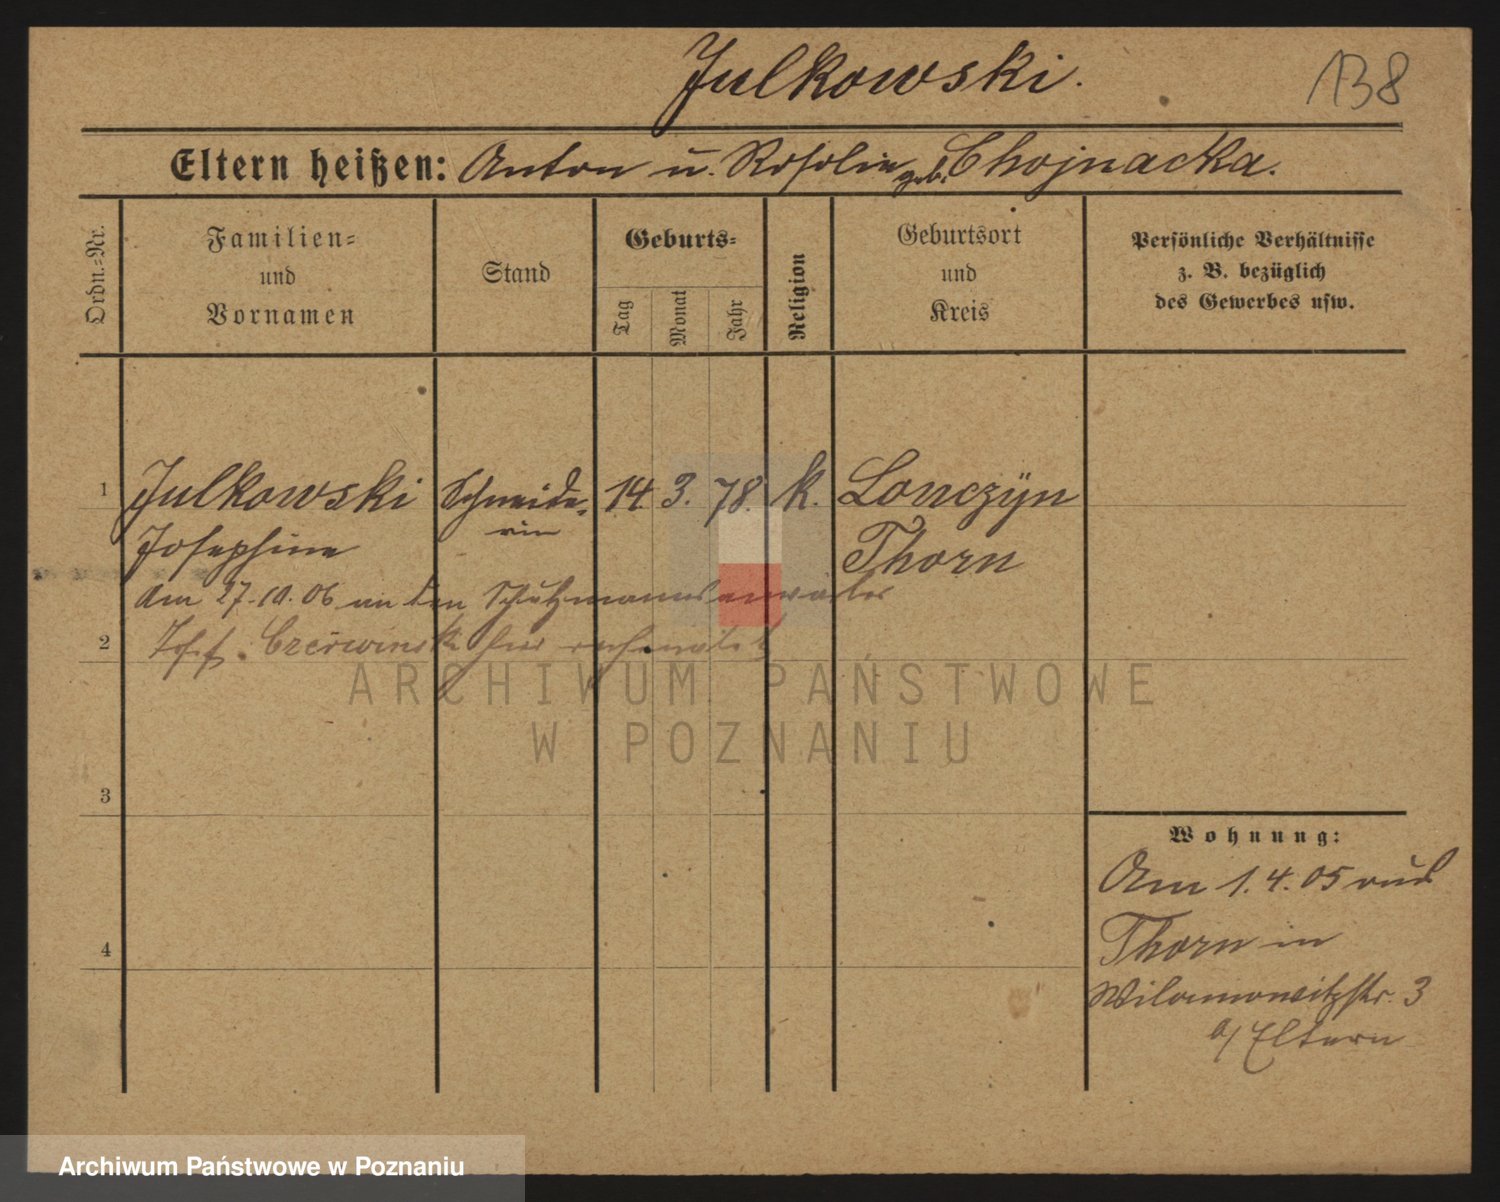 Julkowski.
138
Eltern heißen: Anton u. Rosalie geb. Chojnacka.
Ordn.-Nr.
Familien-
und
Vornamen
Stand
Geburts-
Tag
Monat
Jahr
Religion
Geburtsort
und
Kreis
Persönliche Verhältnisse
z. B. bezüglich
des Gewerbes usw.
1 Julkowski Schneide- 14. 3. 78. k. Lonczyn
rin
Josephine Thorn
Am 27.10.06 an den Schutzmannsanwärter
2 Czerwinski hier
ARCHIWUM PAŃSTWOWE
W POZNANIU
3
Wohnung:
Am 1.4.05 aus
4 Thorn in
Wilamowitzstr. 3
b/ Eltern
Archiwum Państwowe w Poznaniu